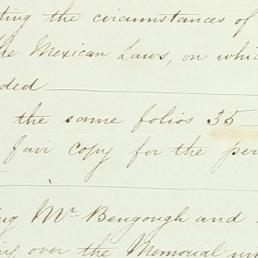 ting the circumstances of
the Mexican Laws, on whic
ded
the same folios 35
fair copy for the per
ng Mr Bengough and
ing over the Memorial un